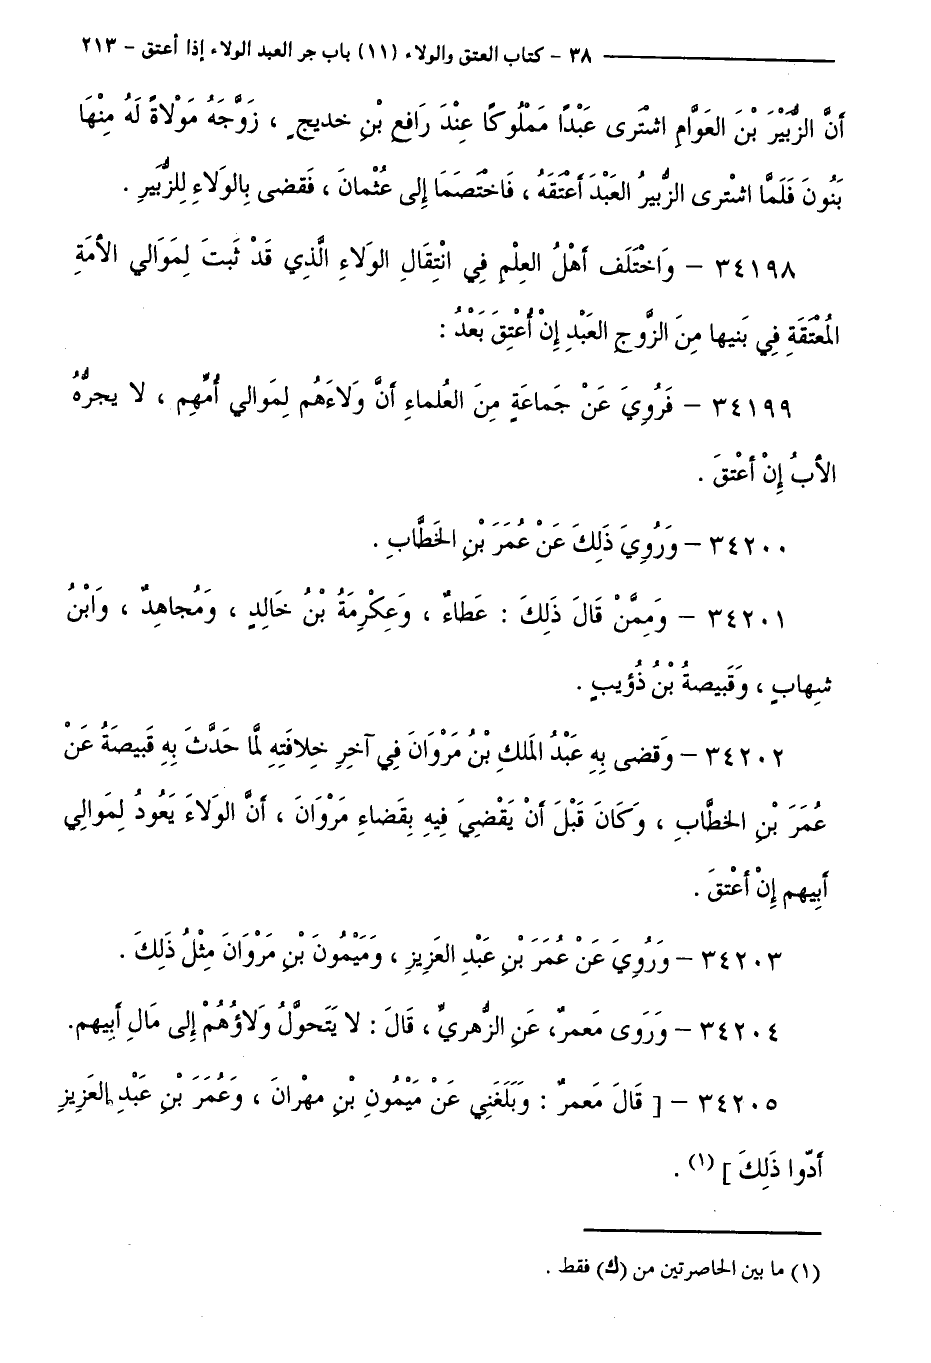 ٣٨ - كتاب العتق والولاء (١١) باب جر العبد الولاء إذا أعتق - ٢١٣
أَنَّ الزُّبَيْرَ بْنَ العَوَّامِ اشْتَرى عَبْدًا مَمْلُوكًا عِنْدَ رَافعِ بْنِ خديجٍ ، زَوَّجَهُ مَوْلاةً لَهُ مِنْهَا
بَنُونَ فَلَمَّا اشْترى الزُّبيرُ العَبْدَ أَعتَقَهُ ، فَاخْتَصَمَا إِلى عُثْمانَ ، فَقضى بِالوَلاءِ لِلزُّبَيرِ .
٣٤١٩٨ - وَاخْتَلَف أَهْلُ العِلْمِ فِي انْتِقَالِ الوَلاءِ الَّذِي قَدْ ثَبتَ لِمَوَالي الأمَةِ
المُعْتَقَةِ فِي بَنيها مِنَ الزَّوجِ العَبْدِ إِنْ أُعْتِقَ بَعْدُ :
٣٤١٩٩ - فَرُوِيَ عَنْ جَماعَةٍ مِنَ العُلماءِ أَنَّ وَلاءَهُم لِمَوالي أُمِّهِم ، لا يجرُّهُ
الأبُ إِنْ أعْتقَ .
٣٤٢٠٠ - وَرُوِيَ ذَلِكَ عَنْ عُمَرَ بْنِ الخَطَّابِ .
٣٤٢٠١ - وَمِمَّنْ قَالَ ذَلِكَ : عَطاءٌ ، وَعِكْرِمَةُ بْنُ خَالِدٍ ، وَمُجاهِدٌ ، وَابْنُ
شهابٍ ، وَقَبِيصةُ بْنُ ذُؤيبٍ .
٣٤٢٠٢ - وَقضى بِهِ عَبْدُ المَلكِ بْنُ مَرْوَانَ فِي آخِرِ خِلافَتِهِ لمَّا حَدَّثَ بِهِ قَبِيصَةُ عَنْ
عُمَرَ بْنِ الخطَّابِ ، وَكَانَ قَبْلَ أَنْ يَقْضِيَ فِيهِ بِقَضاءِ مَرْوَانَ ، أَنَّ الوَلاءَ يَعُودُ لِمَوالِي
أَبِيهم إِنْ أعْتقَ .
٣٤٢٠٣ - وَرُوِيَ عَنْ عُمَرَ بْنِ عَبْدِ العَزيزِ ، وَمَيْمُونَ بْنِ مَرْوَانَ مِثْلُ ذَلِكَ .
٣٤٢٠٤ - وَرَوى مَعمرٌ، عَنِ الزُّهريِّ ، قَالَ : لا يَتَحولُ وَلاؤُهُمْ إِلى مَالِ أَبِيهم.
٣٤٢٠٥ - [ قَالَ مَعمرٌ : وَبَلَغَنِي عَنْ مَيْمُونِ بْنِ مهْرانَ ، وَعُمَرَ بْنِ عَبْدِ العَزِيزِ
أدّوا ذَلِكَ ] (١) .
(١) ما بين الحاصرتين من (ك) فقط .